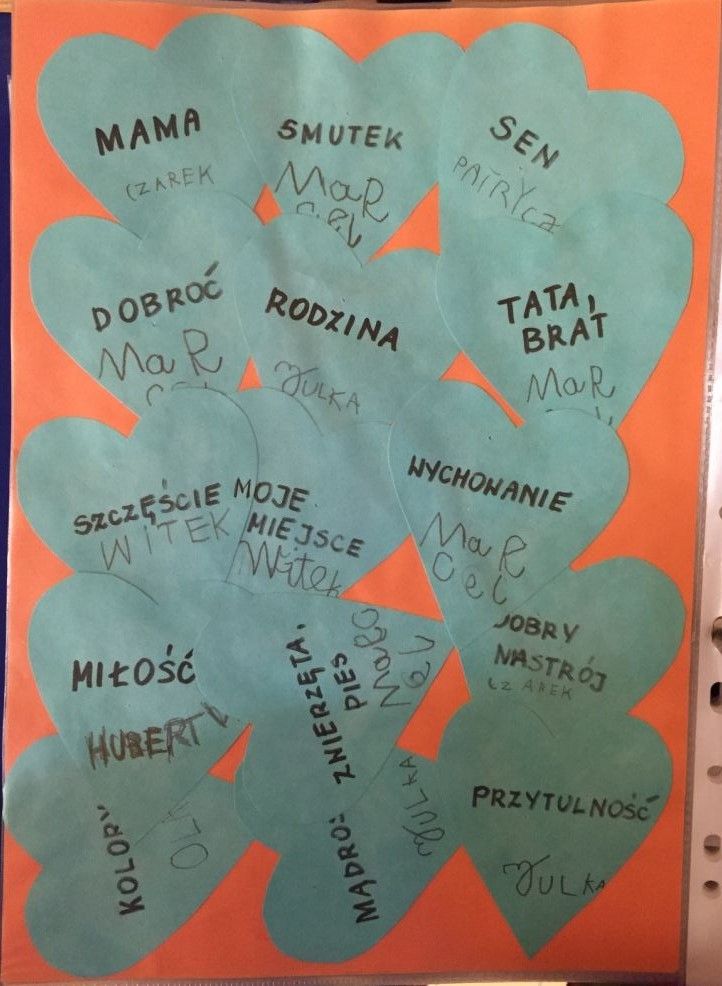 MAMA
CZAREK
SMUTEK
MaR
cel
SEN
PATRYcz
DOBROĆ
MaR
cel
RODZINA
JULKA
TATA,
BRAT
MaR
SZCZĘŚCIE
WITEK
MOJE
MIEJSCE
Witek
WYCHOWANIE
MaR
cel
MIŁOŚĆ
HUBERT
ZWIERZĘTA,
PIES
MaRc
el
DOBRY
NASTRÓJ
CZAREK
KOLORY
OL
MĄDROŚ
JULKA
PRZYTULNOŚĆ
JULKA